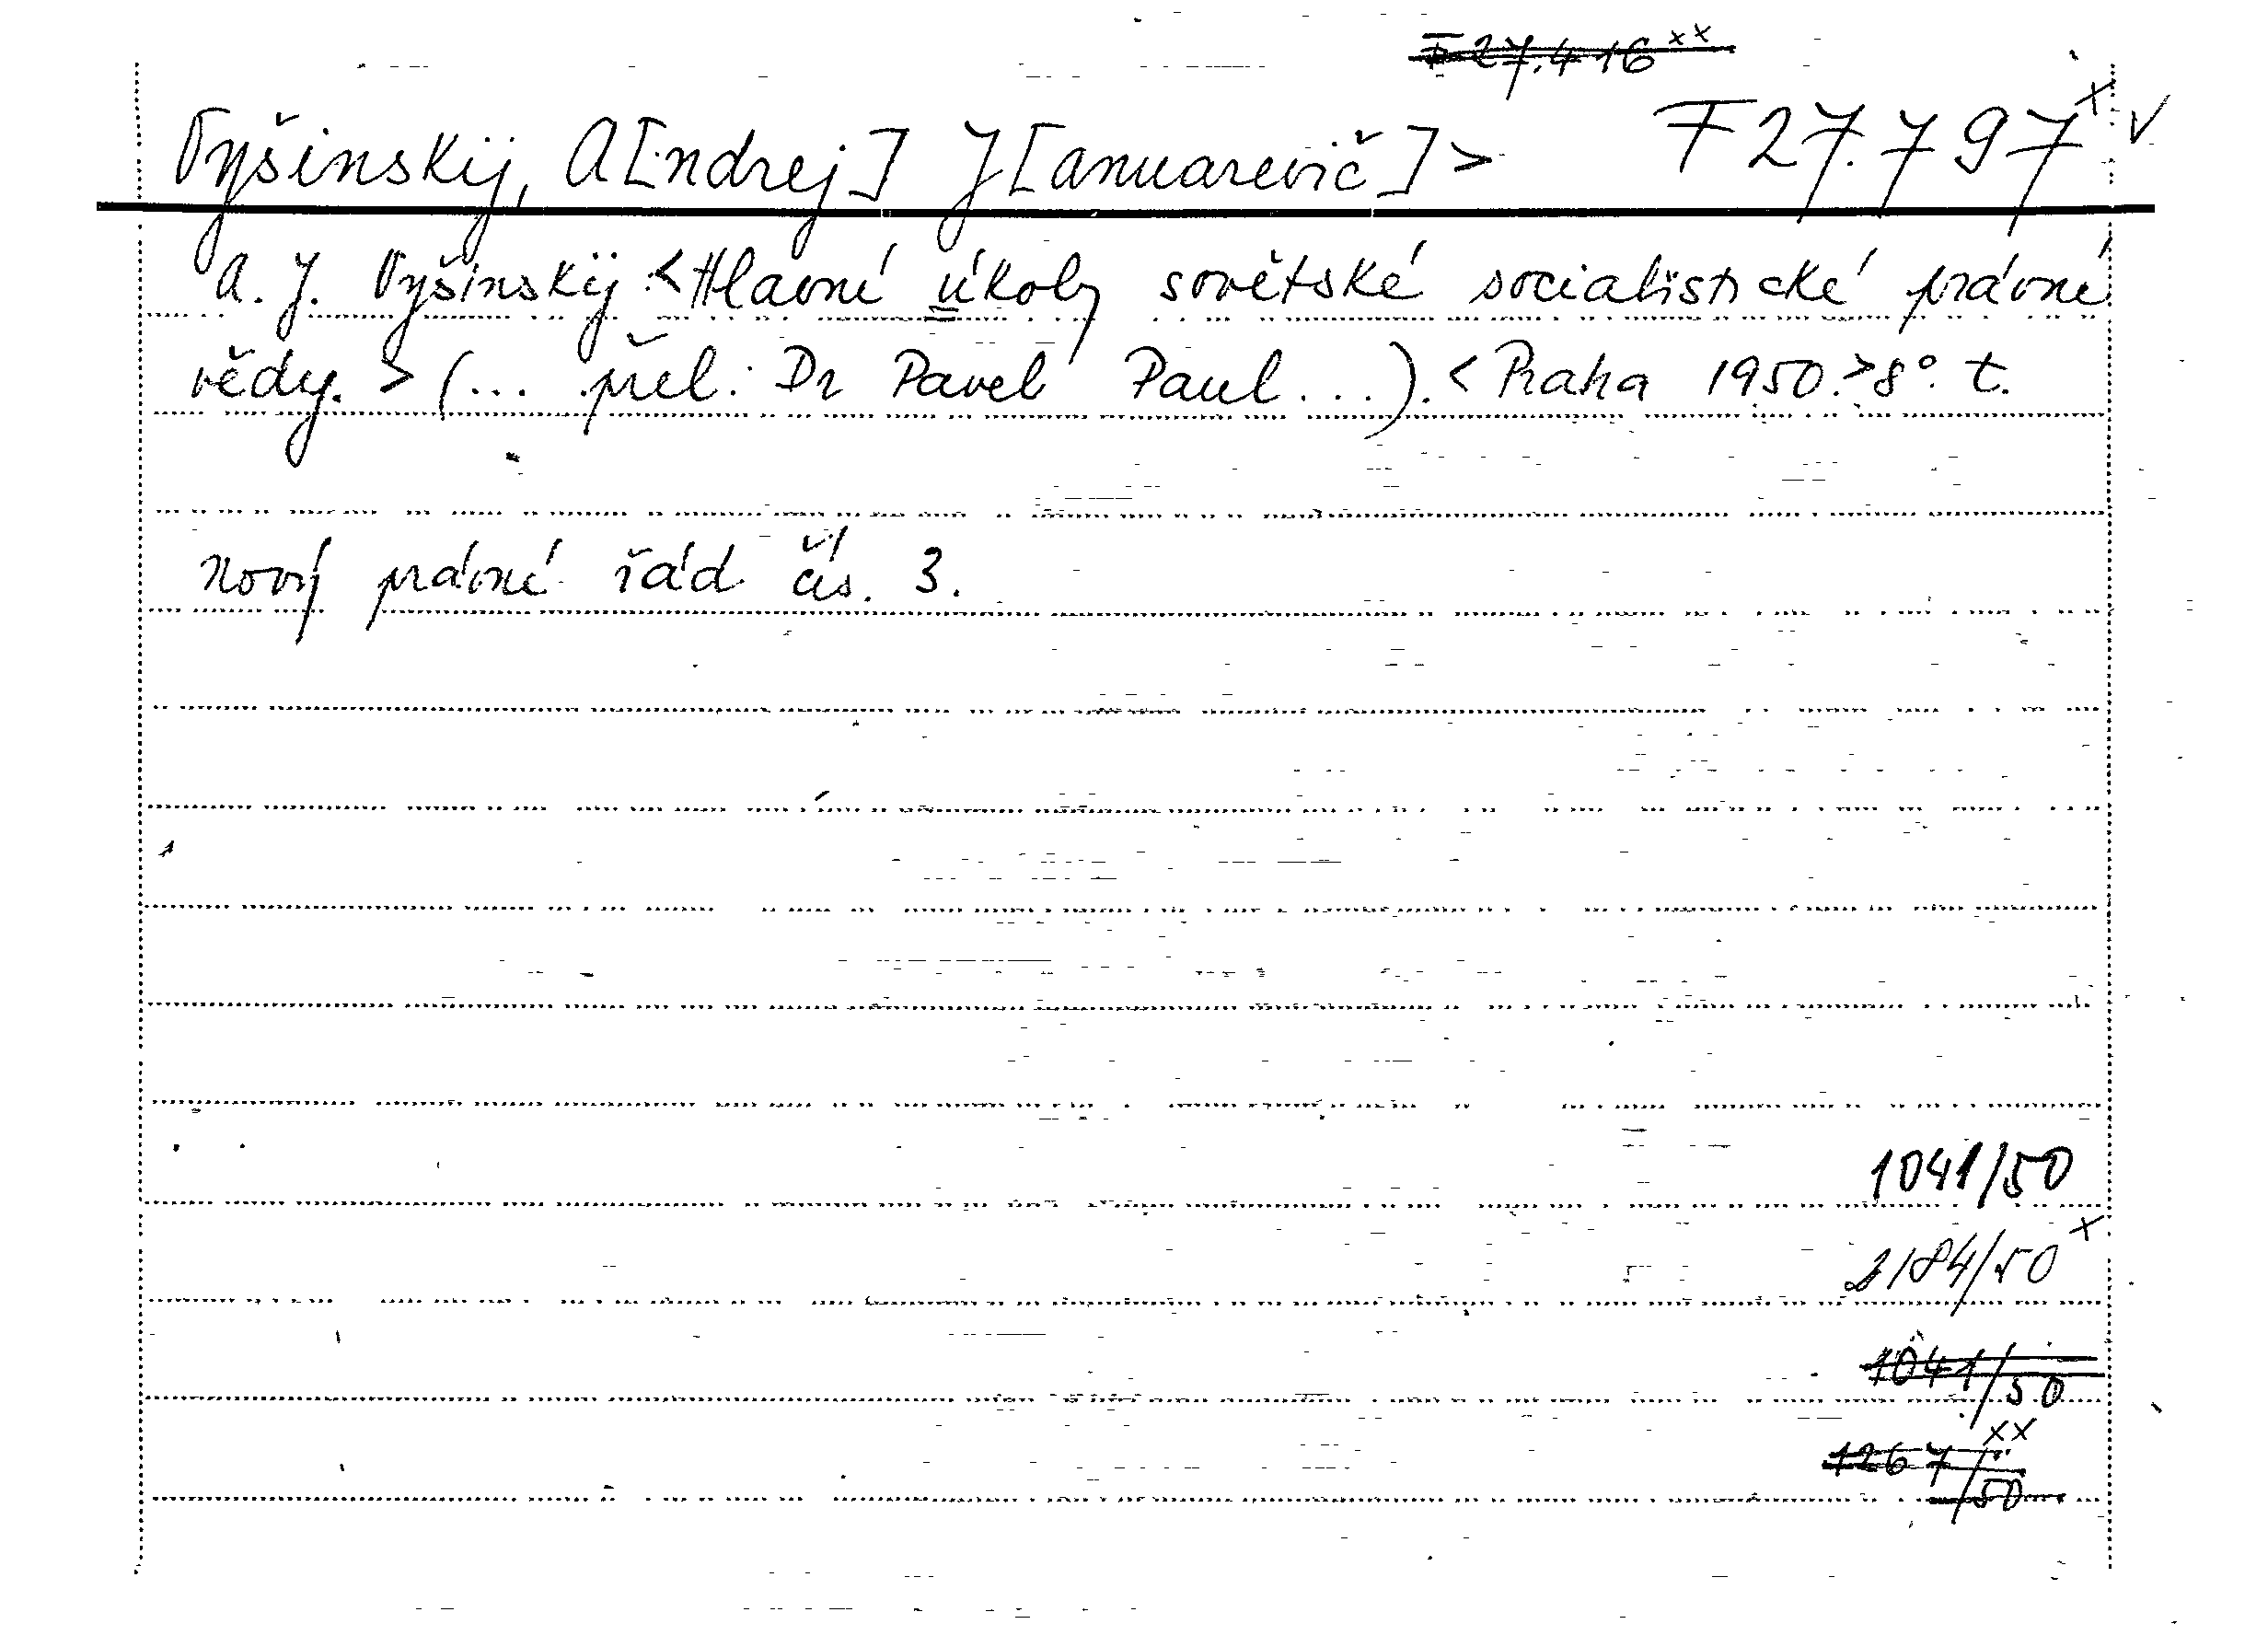 F 27.416 xx
Vyšinskij, A[ndrej] J[anuarevič] > F 27.797 x v
A. J. Vyšinskij: < Hlavní úkoly sovětské socialistické právní
vědy. > (... přel. Dr Pavel Paul...). < Praha 1950. > 8°. t.
Nový právní řád čís. 3.
1041/50
2184/50 x
1041/50
1267/50 xx